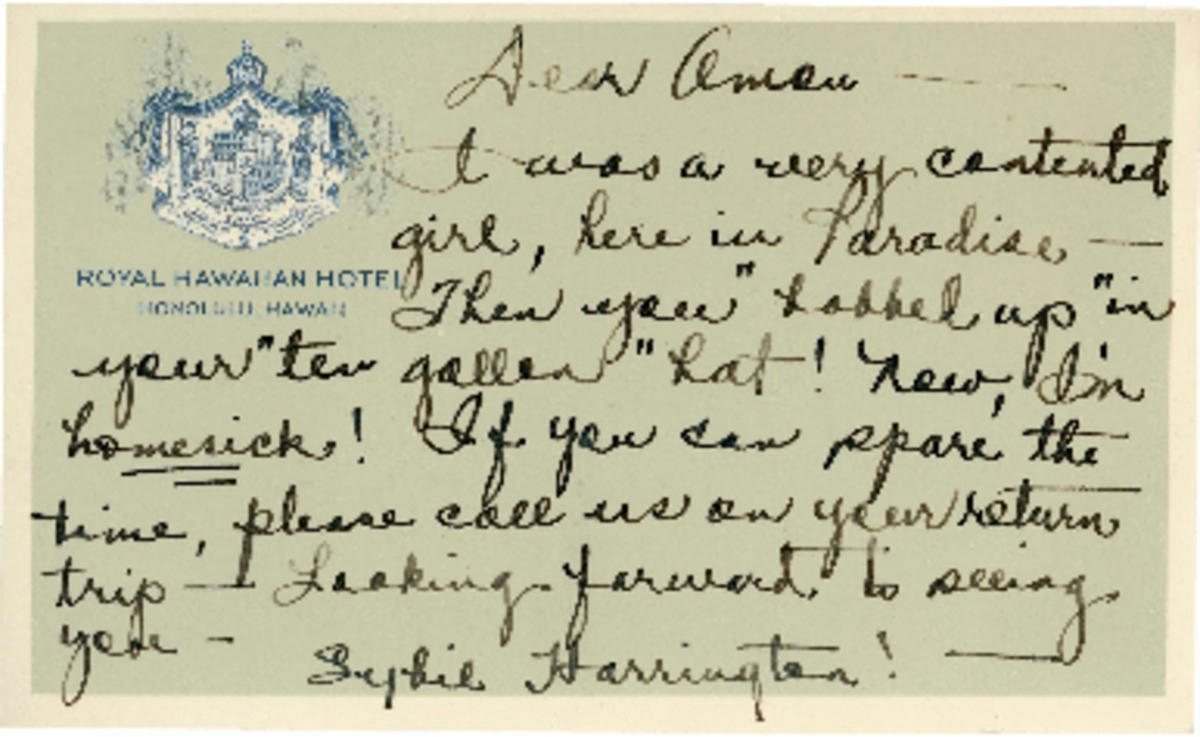 Dear Amon —
I was a very contented
girl, here in Paradise —
ROYAL HAWAIIAN HOTEL
HONOLULU, HAWAII
Then you "bobbed up" in
your "ten gallon" hat! Now, I'm
homesick! If you can spare the
time, please call us on your return
trip — Looking forward to seeing
you —
Sybil Harrington! —